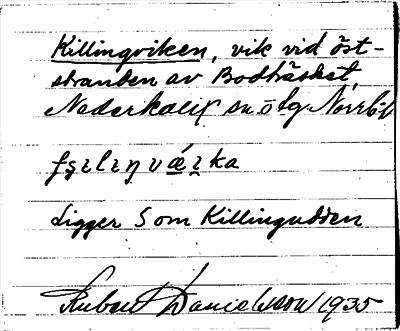 Killingviken, vik vid öst-
stranden av Bodträsket,
Nederkalix sn. ö lg Norrb.
ligger S om Killingudden
Rubert Danielsson 1935